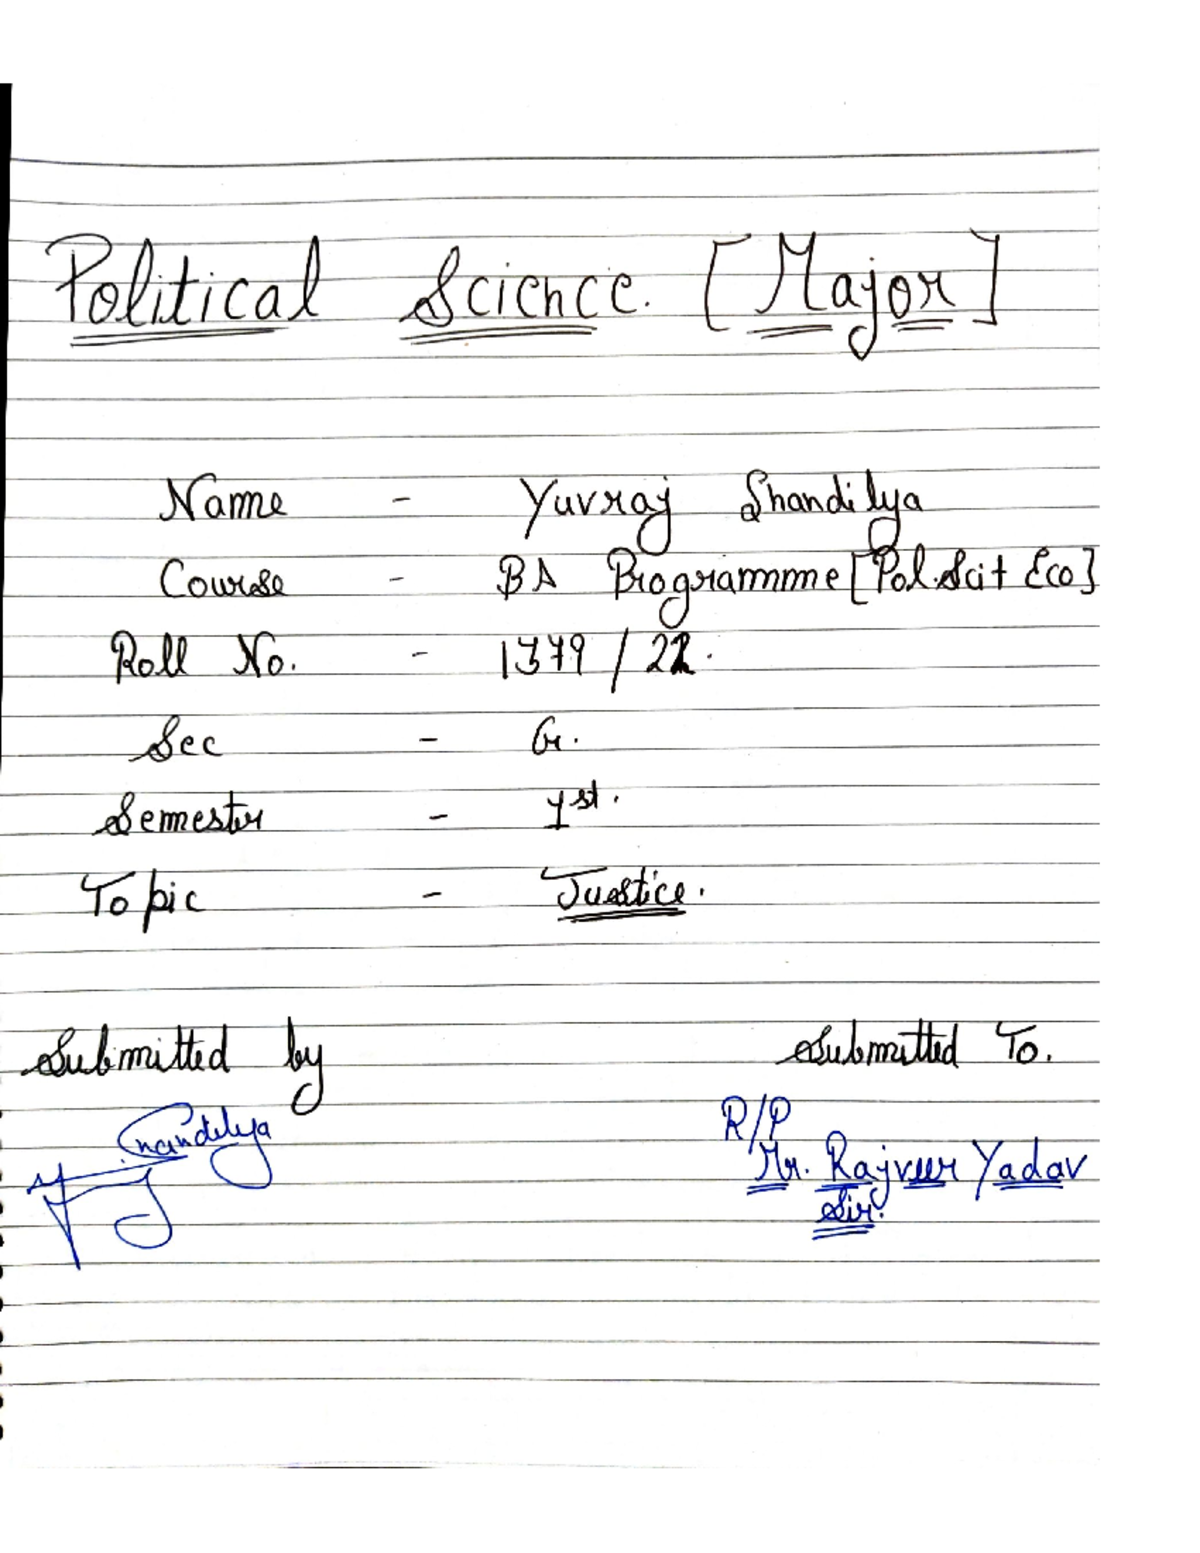 Political Science. [Major]
Name - Yuvraj Shandilya
Course - BA Programme [Pol.Sci + Eco]
Roll No. - 1379 / 22.
Sec - G.
Semester - 1st.
Topic - Justice.
Submitted by
Submitted To.
Shandilya
R/P
Mr. Rajveer Yadav
Sir.